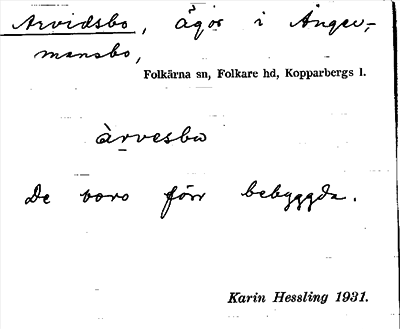 Arvidsbo, ägor i Ånger-
mansbo,
Folkärna sn, Folkare hd, Kopparbergs l.
àrvesbω
De voro förr bebyggda.
Karin Hessling 1931.